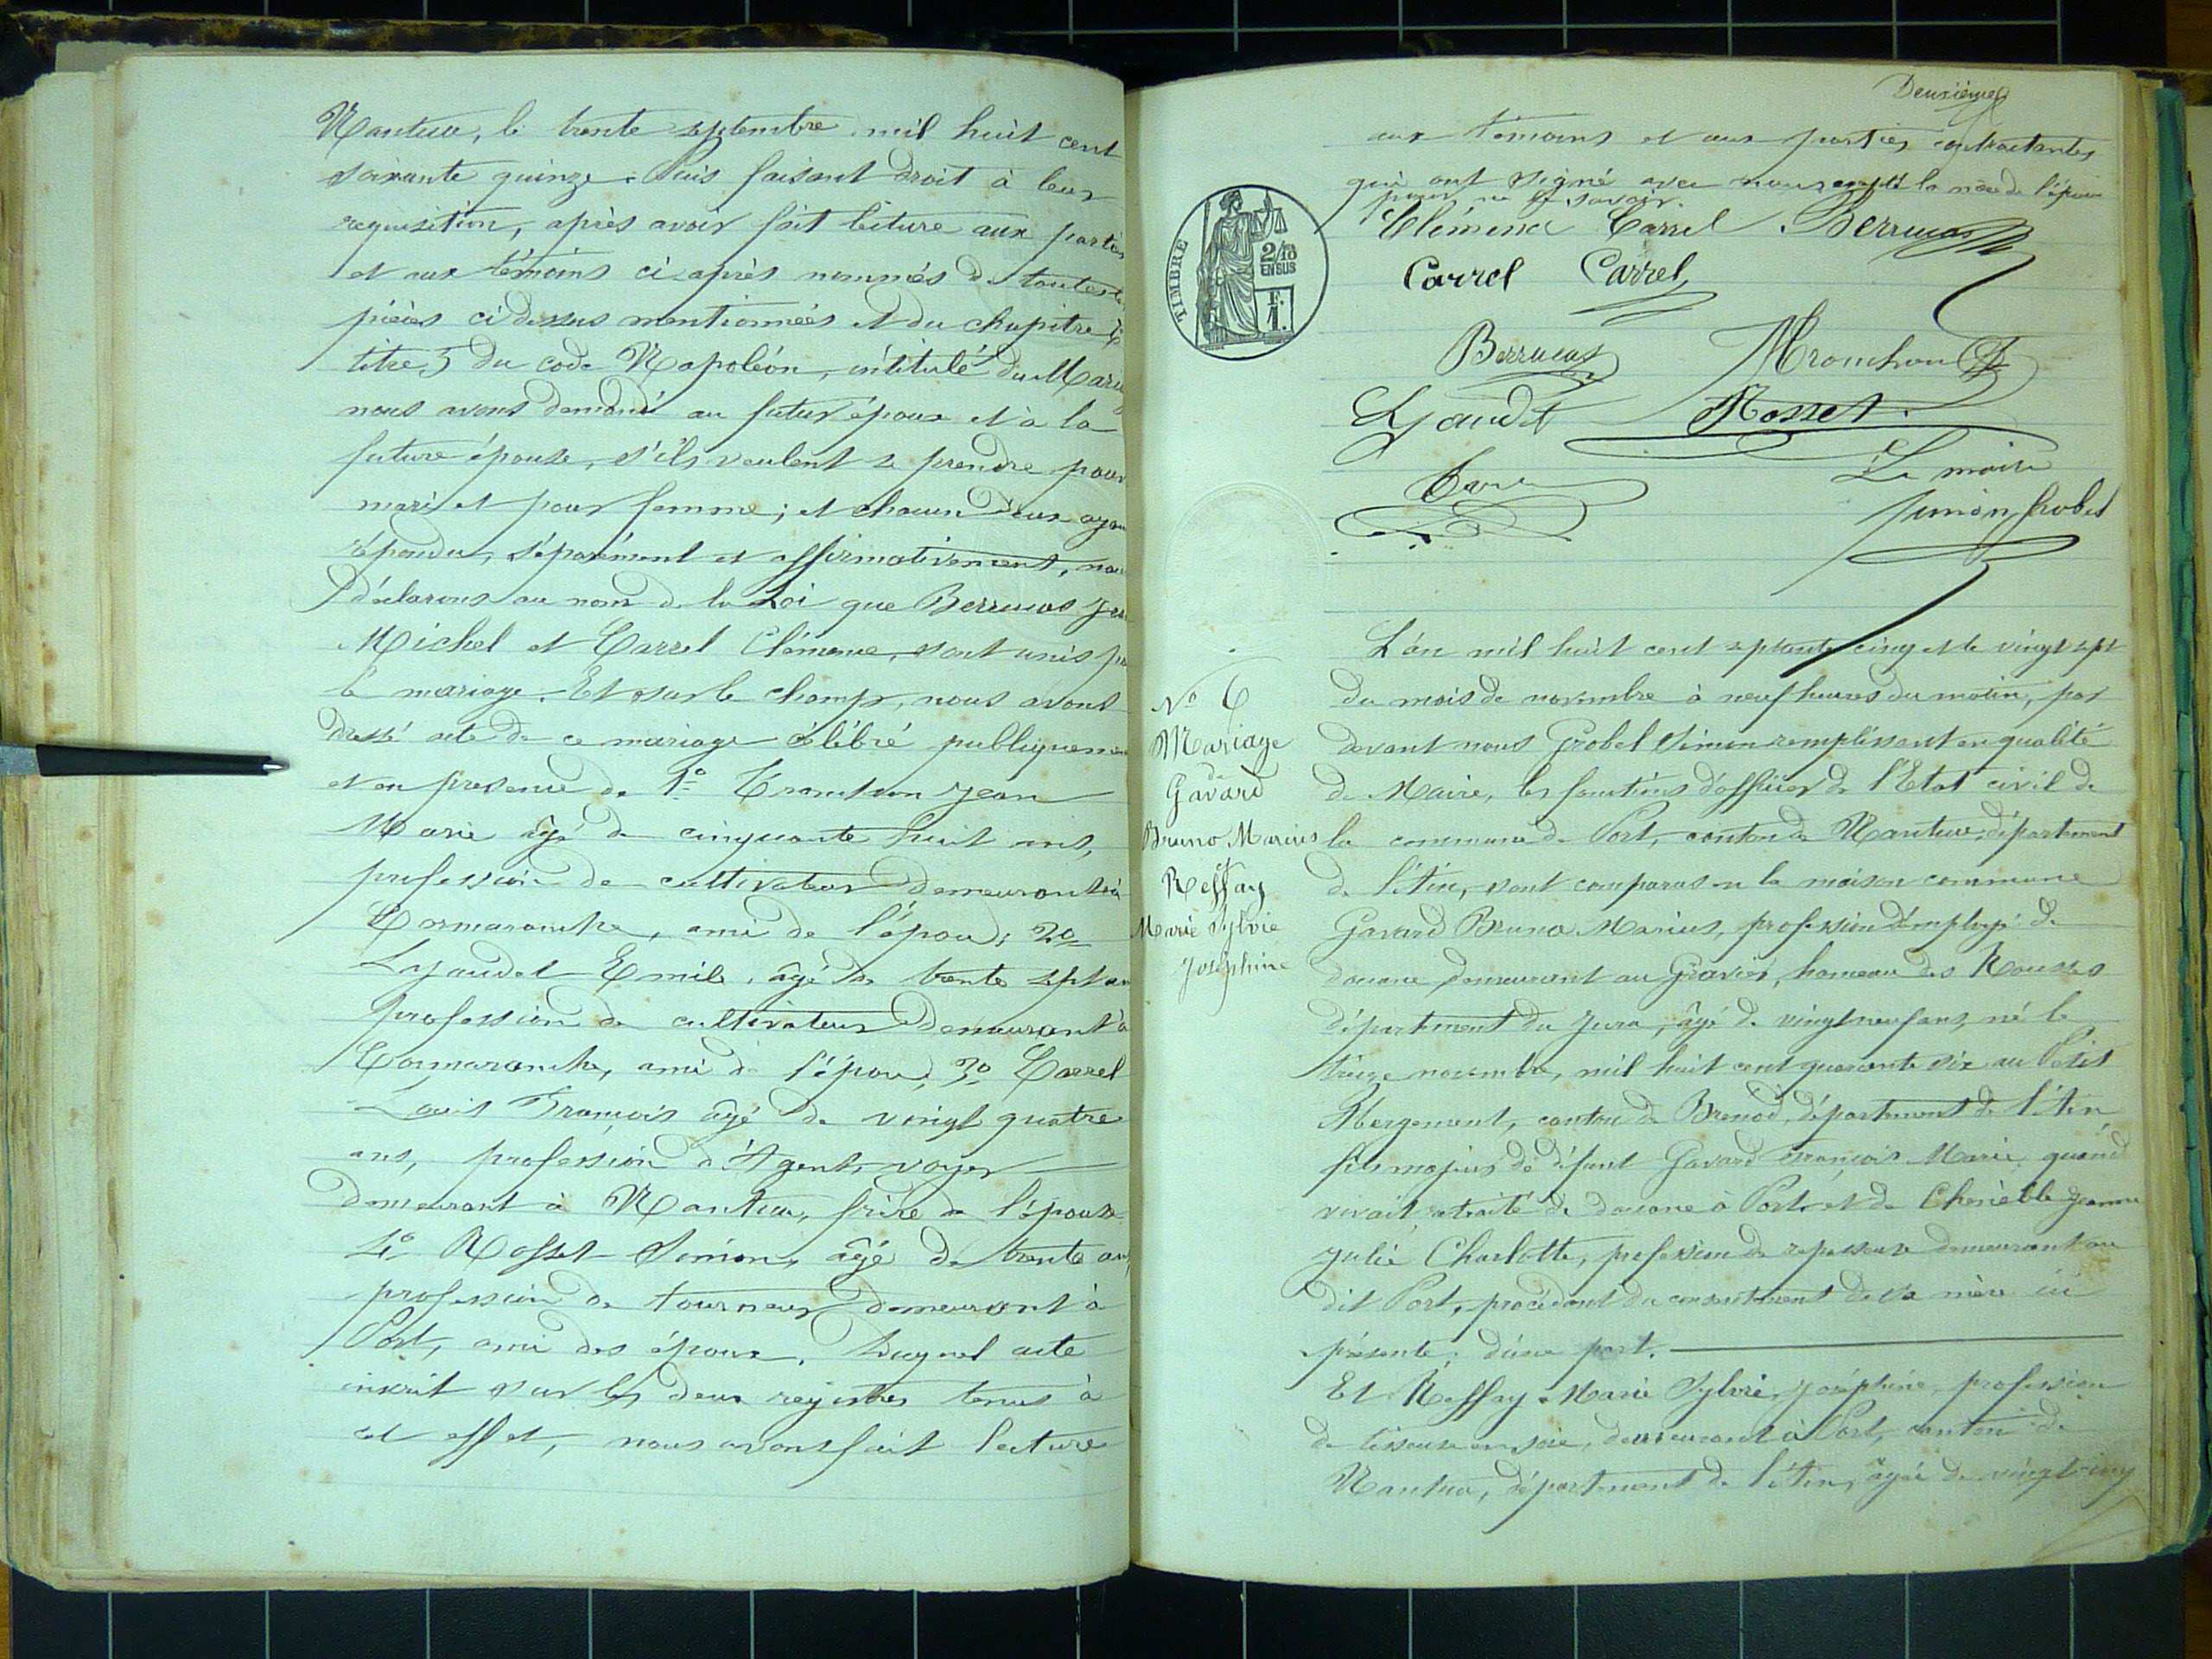 Nantua, le trente septembre mil huit cent
soixante quinze. Puis faisant droit à leur
requisition, après avoir fait lecture aux parties
et aux témoins ci-après nommés de toutes les
pièces ci dessus mentionnées et du chapitre 6
titre 5 du code Napoléon, intitulé du Mariage
nous avons demandé au futur époux et à la
future épouse, s'ils veulent se prendre pour
mari et pour femme; et chacun d'eux ayant
répondu, séparément et affirmativement, nous
déclarons au nom de la Loi que Berrucas Jean
Michel et Carrel Clémence, sont unis par
le mariage. Et sur le champ, nous avons
dressé acte de ce mariage célébré publiquement
et en presence de 1º Jean
Marie âgé de cinquante huit ans,
profession de cultivateur demeurant à
Cormaranche, ami de l'époux; 2º
Lajaudet Emile, âgé de trente sept ans
profession de cultivateur demeurant à
Cormaranche, ami de l'époux, 3º Carrel
Louis François âgé de vingt quatre
ans, profession d'Agent-voyer
demeurant à Nantua, frère de l'épouse
4º Rosset Simon, âgé de trente ans,
profession de tourneur demeurant à
Port, ami des époux. Duquel acte
inscrit sur les deux registres tenus à
cet effet, nous avons fait lecture
Deuxième
aux témoins et aux parties contractantes
qui ont signé avec nous excepté la mère de l'époux
pour ne le savoir.
TIMBRE
2/10
EN SUS
1 F.
Clémence Carrel Berrucas
Carrel Carrel
Berrucas
Rosset
Le maire
Simon Grobel
L'an mil huit cent septante cinq et le vingt sept
du mois de novembre à neuf heures du matin, par
devant nous Grobel Simon remplissant en qualité
de Maire, les fonctions d'officier de l'Etat civil de
la commune de Port, canton de Nantua, département
de l'Ain, sont comparus en la maison commune
Gavard Bruno Marius, profession d'employé de
douane demeurant au Gravier, hameau des Rousses
département du Jura, âgé de vingt neuf ans, né le
treize novembre, mil huit cent quarante six au Petit
Abergement, canton de Brenod, département de l'Ain
fils majeur de défunt Gavard François Marie, quand
vivait retraité de douane à Port et de Jeanne
Julie Charlotte, profession de repasseuse demeurant au
dit Port, procédant du consentement de sa mère ici
présente, d'une part.
Et Reffay Marie Sylvie Joséphine, profession
de tisseuse en soie, demeurant à Port, canton de
Nantua, département de l'Ain, âgée de vingt-cinq
Nº 6
Mariage
de
Gavard
Bruno Marius
et
Reffay
Marie Sylvie
Joséphine